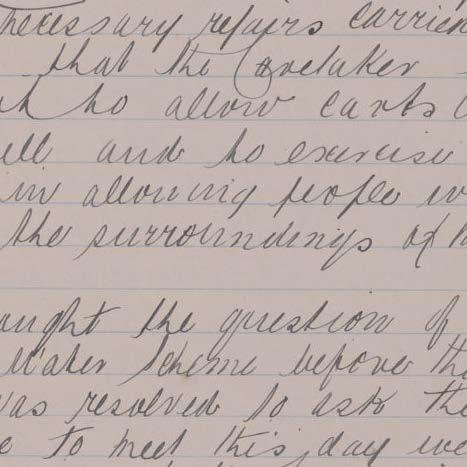 necessary repairs carried
that the Caretaker
to allow carts
and to exercise
in allowing people
the surroundings of
the question of
Water Scheme before the
was resolved to ask the
to meet this day